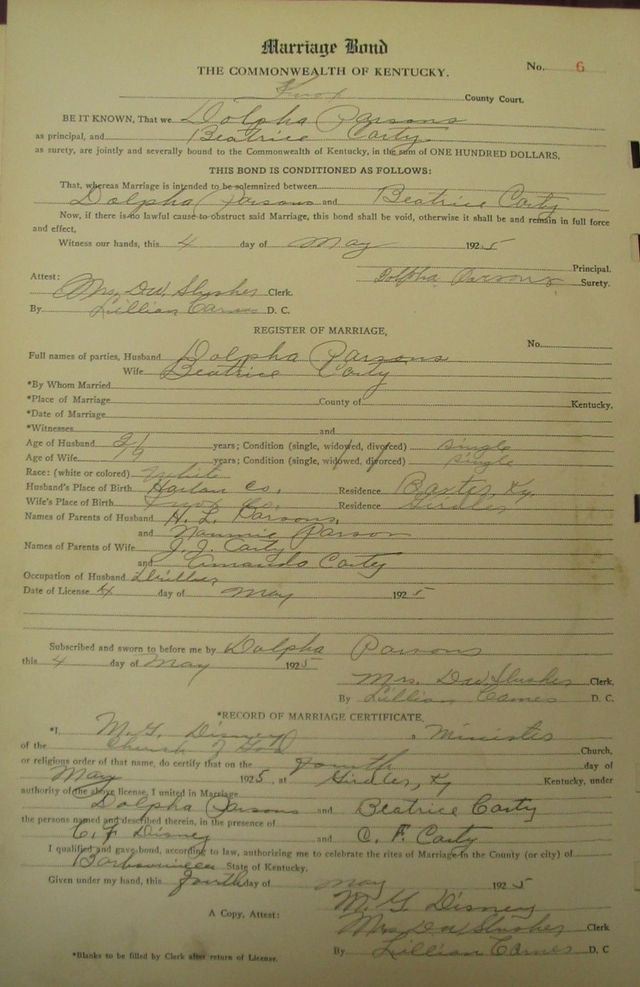 Marriage Bond
THE COMMONWEALTH OF KENTUCKY.
No. 6
Knox County Court.
BE IT KNOWN, That we Dolpha Parsons
as principal, and Beatrice Carty
as surety, are jointly and severally bound to the Commonwealth of Kentucky, in the sum of ONE HUNDRED DOLLARS.
THIS BOND IS CONDITIONED AS FOLLOWS:
That, whereas Marriage is intended to be solemnized between
Dolpha Parsons and Beatrice Carty
Now, if there is no lawful cause to obstruct said Marriage, this bond shall be void, otherwise it shall be and remain in full force
and effect,
Witness our hands, this 4 day of May 1925
Principal.
Attest: Dolpha Parsons Surety.
Mrs. D.W. Slusher Clerk.
By Lillian Carnes D. C.
REGISTER OF MARRIAGE,
No.
Full names of parties, Husband Dolpha Parsons
Wife Beatrice Carty
*By Whom Married
*Place of Marriage County of Kentucky,
*Date of Marriage
*Witnesses and
Age of Husband years; Condition (single, widowed, divorced) single
Age of Wife years; Condition (single, widowed, divorced) single
Race: (white or colored) White
Husband's Place of Birth Harlan Co. Residence Baxter, Ky.
Wife's Place of Birth Knox Co. Residence Girdler
Names of Parents of Husband H. L. Parsons,
and Nannie Parson
Names of Parents of Wife J. J. Carty
and Amanda Carty
Occupation of Husband
Date of License 4 day of May 1925
Subscribed and sworn to before me by Dolpha Parsons
this 4 day of May 1925
Mrs. D.W. Slusher Clerk.
By Lillian Carnes D. C.
*RECORD OF MARRIAGE CERTIFICATE,
*I, M. G. Disney, Minister
of the Church of God Church,
or religious order of that name, do certify that on the fourth day of
May 1925, at Girdler, Ky Kentucky, under
authority of the above license, I united in Marriage
Dolpha Parsons and Beatrice Carty
the persons named and described therein, in the presence of
C. F. Disney and C. F. Carty
I qualified and gave bond, according to law, authorizing me to celebrate the rites of Marriage in the County (or city) of
Barbourville State of Kentucky.
Given under my hand, this fourth day of May 1925
M. G. Disney
A Copy, Attest: Mrs. D.W. Slusher Clerk
By Lillian Carnes D. C
*Blanks to be filled by Clerk after return of License.